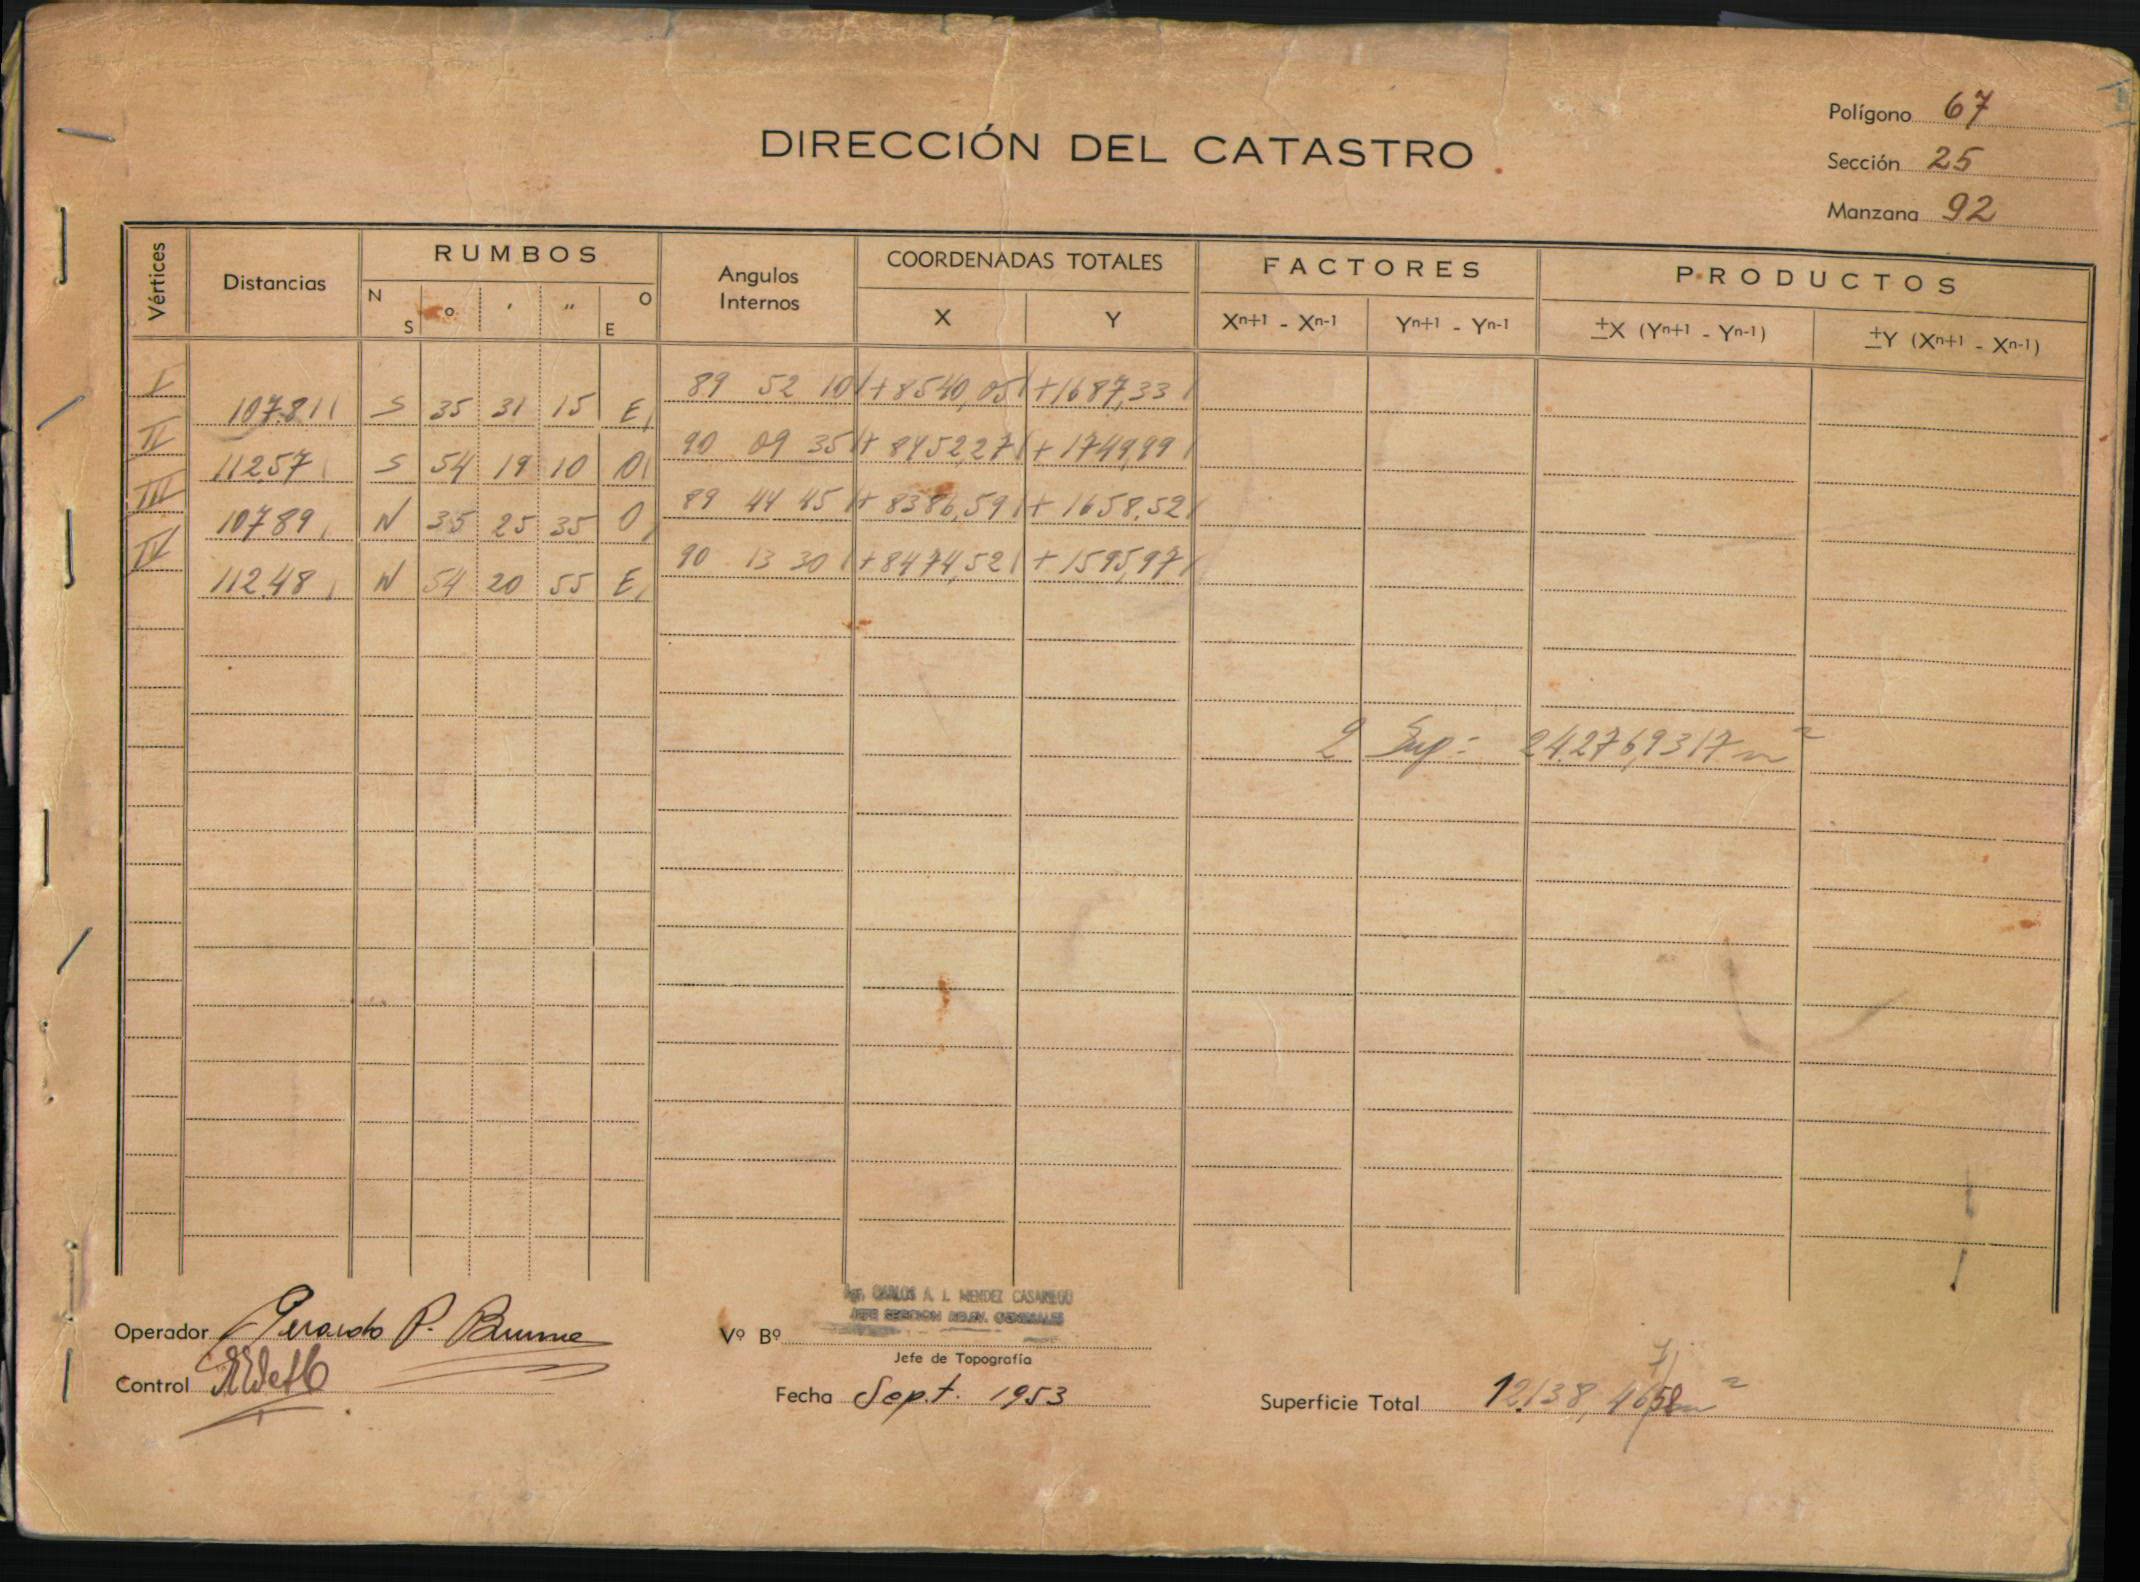 Polígono 67
DIRECCIÓN DEL CATASTRO
Sección 25
Manzana 92
Vértices Distancias RUMBOS Angulos Internos COORDENADAS TOTALES FACTORES PRODUCTOS
N S º ' " E O X Y Xⁿ⁺¹ - Xⁿ⁻¹ Yⁿ⁺¹ - Yⁿ⁻¹ ±X (Yⁿ⁺¹ - Yⁿ⁻¹) ±Y (Xⁿ⁺¹ - Xⁿ⁻¹)
I 89 52 10 +8540,05 +1687,33
107.81 S 35 31 15 E
II 90 09 35 + 8452,27 + 1749,99
112,57 S 54 19 10 O
III 89 44 45 + 8386,59 + 1658,52
107.89 N 35 25 35 O
IV 90 13 30 +8474,52 + 1595,97
112.48 N 54 20 55 E
2 Sup = 24.276,9317 m²
Operador Gerardo P.
Control
Vº Bº
Agr. CARLOS A. L. MENDEZ CASARIEGO
JEFE SECCION RELEV. GENERALES
Jefe de Topografía
Fecha Sept. 1953
Superficie Total 12.138, 4658 m²